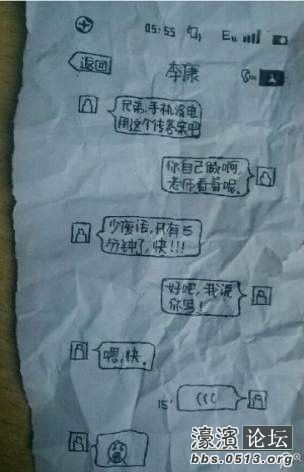 05:55 E
返回
李康
兄弟,手机没电
用这个传答案吧
你自己做啊,
老师看着呢。
少废话,只有5
分钟了,快!!!
好吧,我说
你写!
喂,快。
15"
(((
濠滨论坛
bbs.0513.org